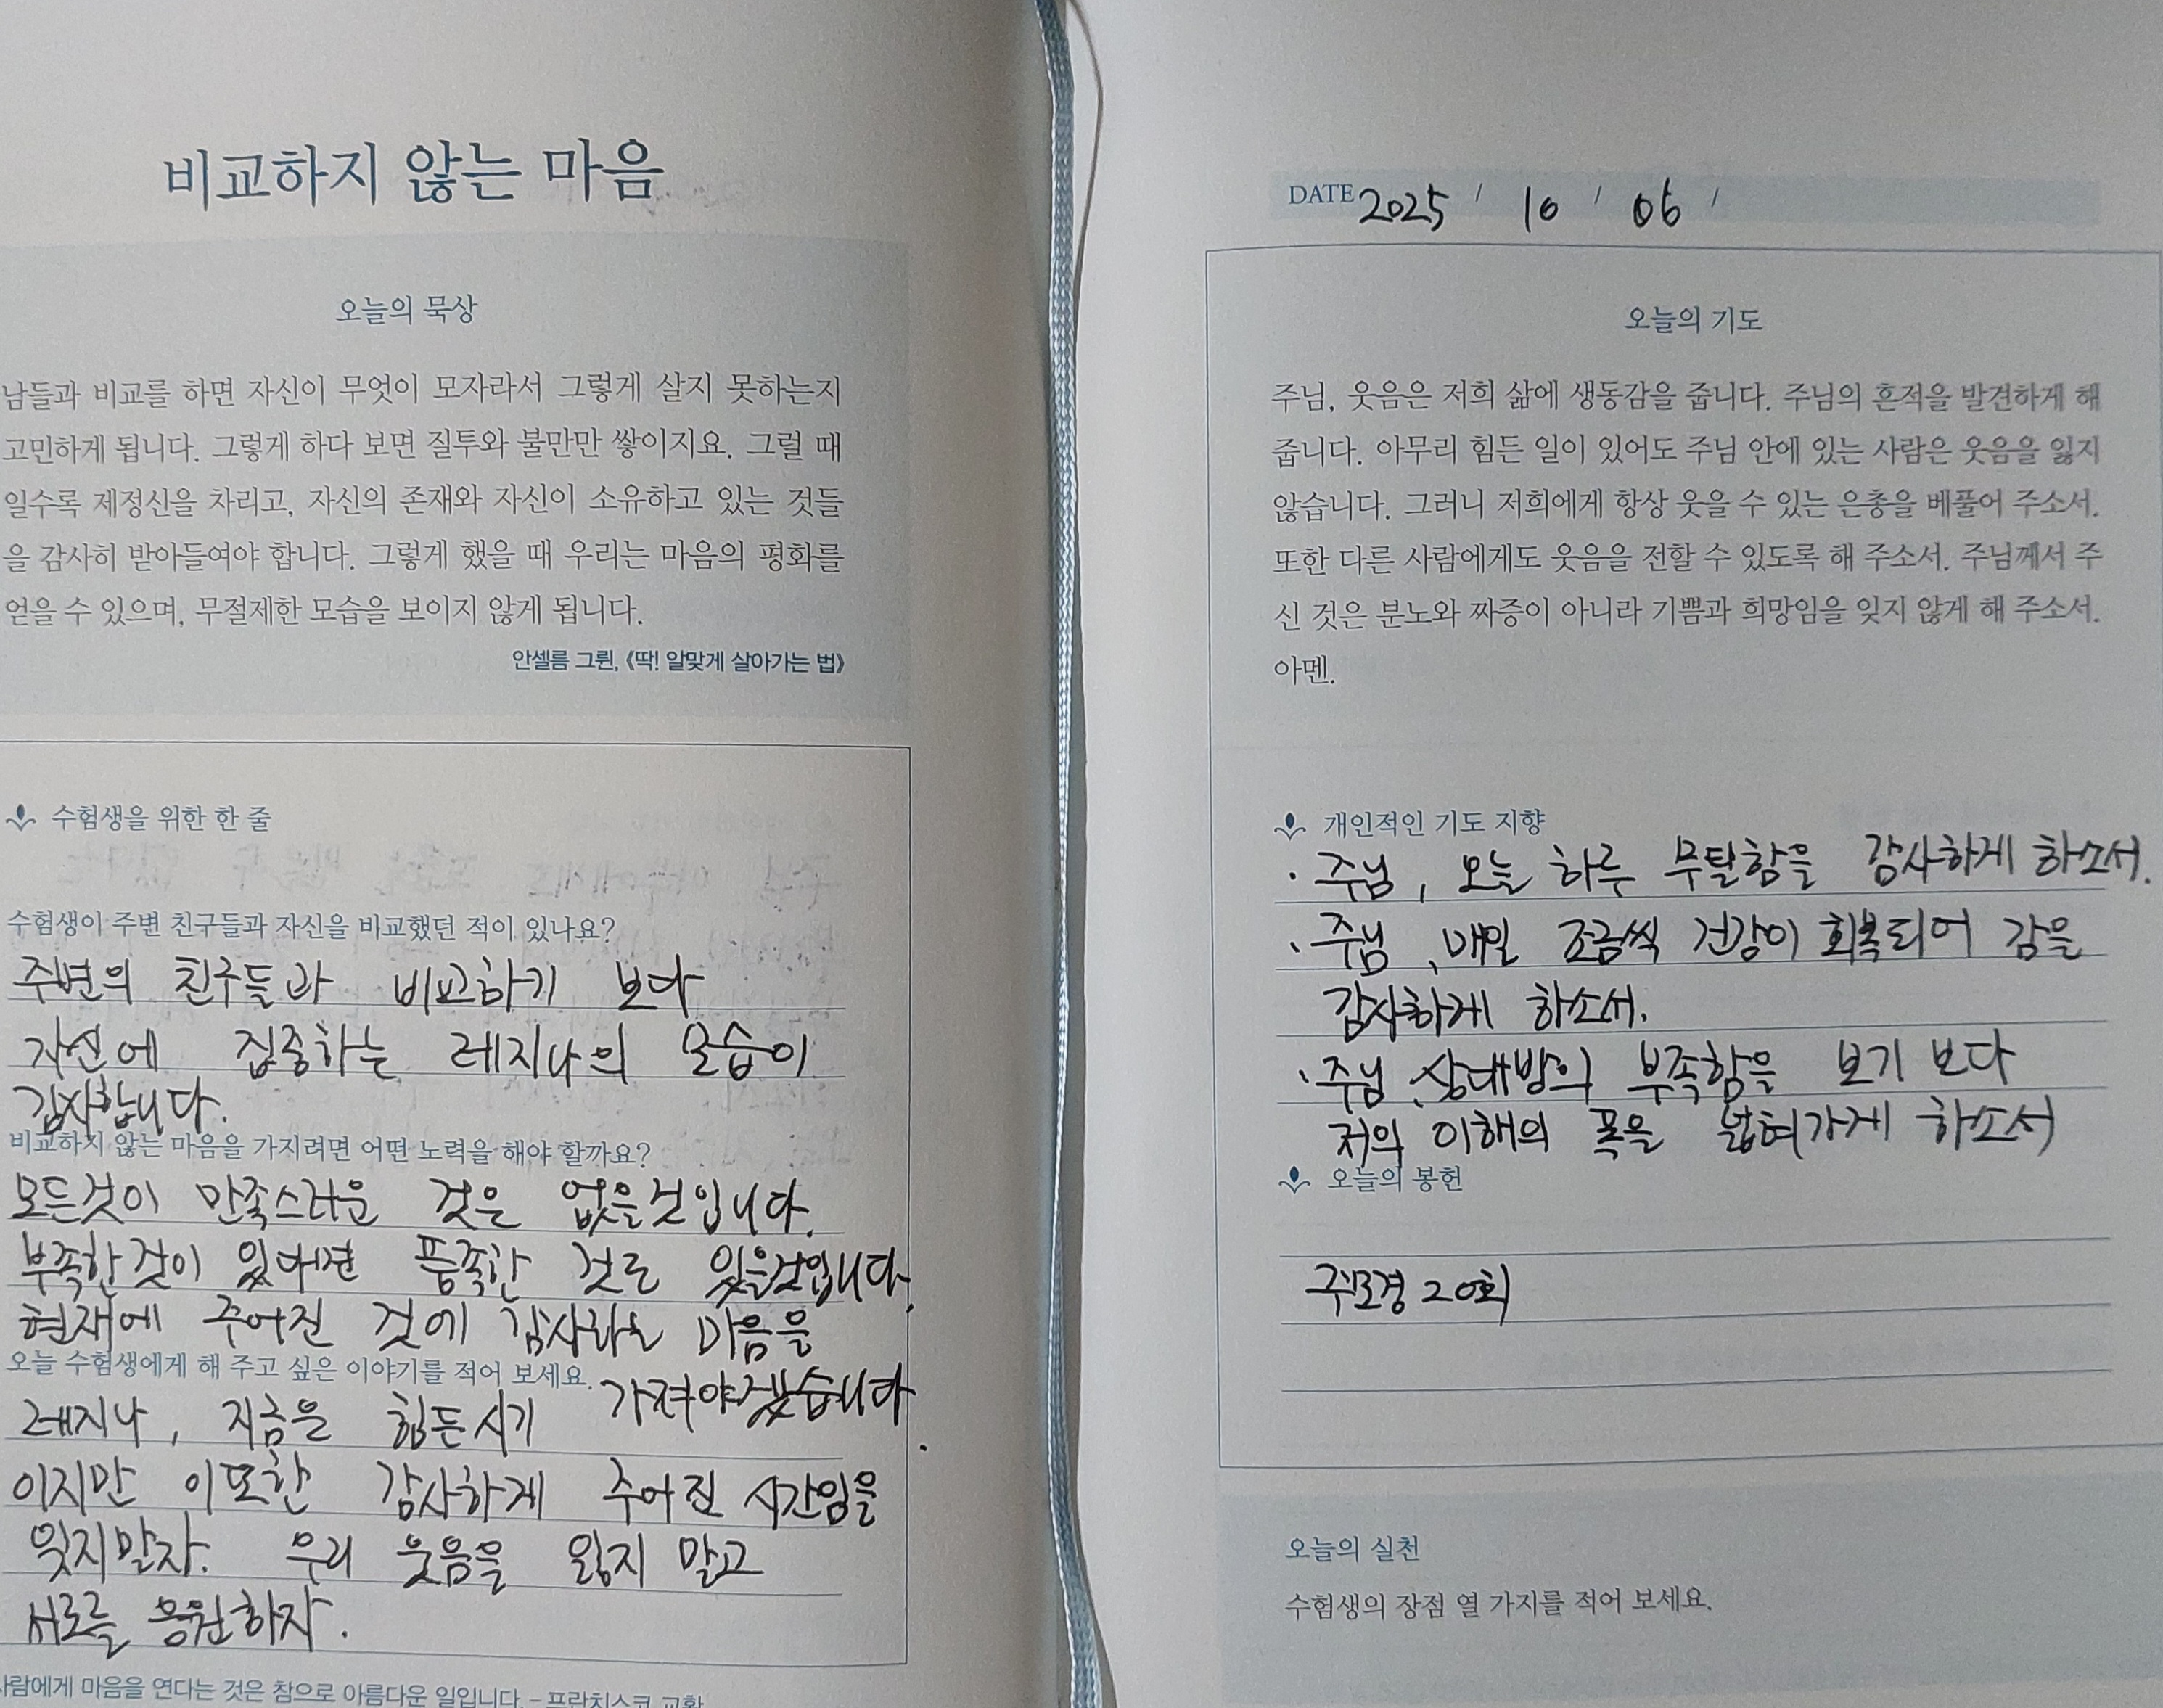 비교하지 않는 마음
오늘의 묵상
남들과 비교를 하면 자신이 무엇이 모자라서 그렇게 살지 못하는지
고민하게 됩니다. 그렇게 하다 보면 질투와 불만만 쌓이지요. 그럴 때
일수록 제정신을 차리고, 자신의 존재와 자신이 소유하고 있는 것들
을 감사히 받아들여야 합니다. 그렇게 했을 때 우리는 마음의 평화를
얻을 수 있으며, 무절제한 모습을 보이지 않게 됩니다.
안셀름 그륀, 《딱! 알맞게 살아가는 법》
수험생을 위한 한 줄
수험생이 주변 친구들과 자신을 비교했던 적이 있나요?
주변의 친구들과 비교하기 보다
자신에 집중하는 레지나의 모습이
감사합니다.
비교하지 않는 마음을 가지려면 어떤 노력을 해야 할까요?
모든것이 만족스러운 것은 없을것입니다.
부족한것이 있다면 풍족한 것도 있을것입니다.
현재에 주어진 것에 감사하는 마음을
가져야겠습니다.
오늘 수험생에게 해 주고 싶은 이야기를 적어 보세요.
레지나, 지금은 힘든시기
이지만 이또한 감사하게 주어진 시간임을
잊지말자. 우리 웃음을 잃지 말고
서로를 응원하자.
사람에게 마음을 연다는 것은 참으로 아름다운 일입니다. – 프란치스코 교황
DATE 2025 / 10 / 06 /
오늘의 기도
주님, 웃음은 저희 삶에 생동감을 줍니다. 주님의 흔적을 발견하게 해
줍니다. 아무리 힘든 일이 있어도 주님 안에 있는 사람은 웃음을 잃지
않습니다. 그러니 저희에게 항상 웃을 수 있는 은총을 베풀어 주소서.
또한 다른 사람에게도 웃음을 전할 수 있도록 해 주소서. 주님께서 주
신 것은 분노와 짜증이 아니라 기쁨과 희망임을 잊지 않게 해 주소서.
아멘.
개인적인 기도 지향
· 주님, 오늘 하루 무탈함을 감사하게 하소서.
· 주님, 매일 조금씩 건강이 회복되어 감을
감사하게 하소서.
· 주님, 상대방의 부족함을 보기 보다
저의 이해의 폭을 넓혀가게 하소서
오늘의 봉헌
주모경 20회
오늘의 실천
수험생의 장점 열 가지를 적어 보세요.